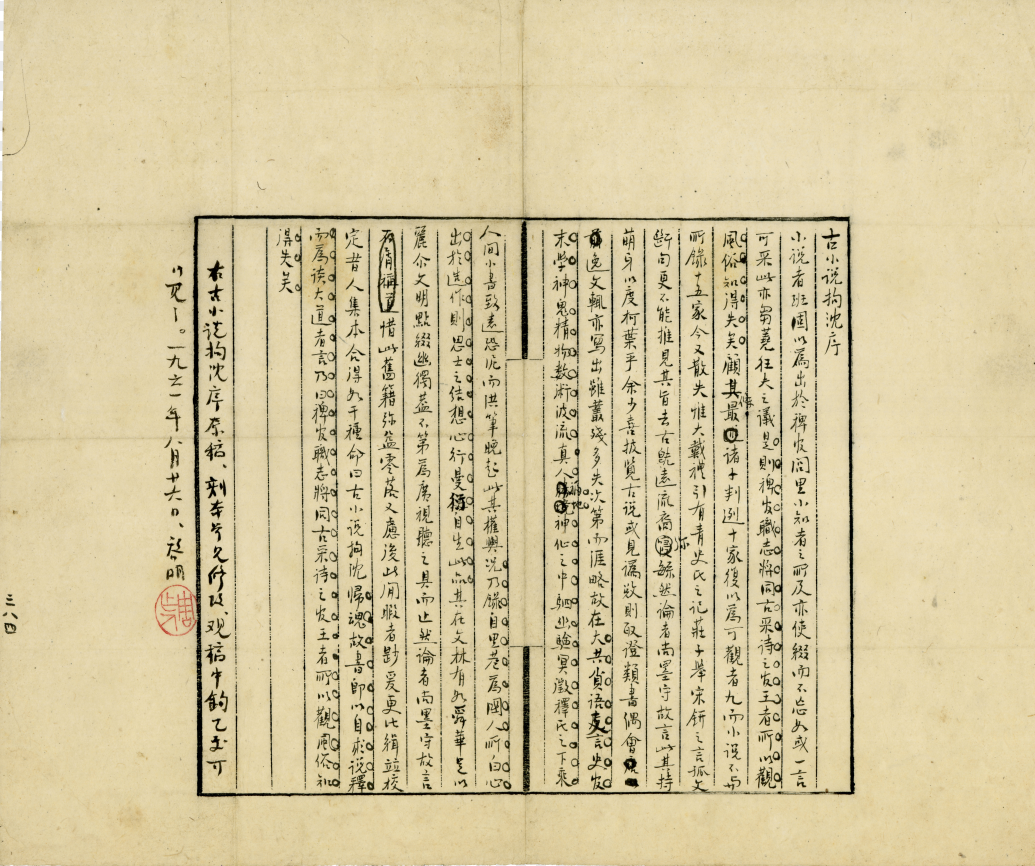 古小说拘沈序
小说者班固以為出於稗官閭里小知者之所及亦使綴而不忘如或一言
可采此亦芻蕘狂夫之議是則稗官職志將同古采詩之官王者所以觀
風俗知得失矣顧其最諸子判列十家復以為可觀者九而小说不与
所錄十五家今又散失惟大戴禮引有青史氏之記莊子舉宋鈃之言孤文
斷句更不能推見其旨去古既遠流裔弥繇然論者尚墨守故言此其持
萌芽以度柯葉乎余少喜披覽古说或見譌敚則取證類書偶會
逸文輒亦寫出雖叢殘多失次第而涯略故在大共貨語支言史官
末學神鬼精物數術波流真人福地神化之中駟幽驗冥徵釋氏之下乘
人間小書致遠恐泥而洪筆晚起此其權輿況乃錄自里巷為國人所白心
出於造作則思士之结想心行曼衍自生此品其在文林有如舜華足以
麗尒文明點綴幽獨蓋不第為廣視聽之具而止然論者尚墨守故言
惜此舊籍弥益零落又慮後此閒暇者尠爰更比緝並校
定昔人集本合得如干種命曰古小说拘沈歸魂故書即以自求说釋
而為读大道者言乃曰稗官職志將同古采诗之官王者所以觀風俗知
得失矣
右古小说拘沈序原稿、刻本多久修改、观稿中鈎乙处可
以见了。一九六一年八月廿六日、啓明
周
三八四